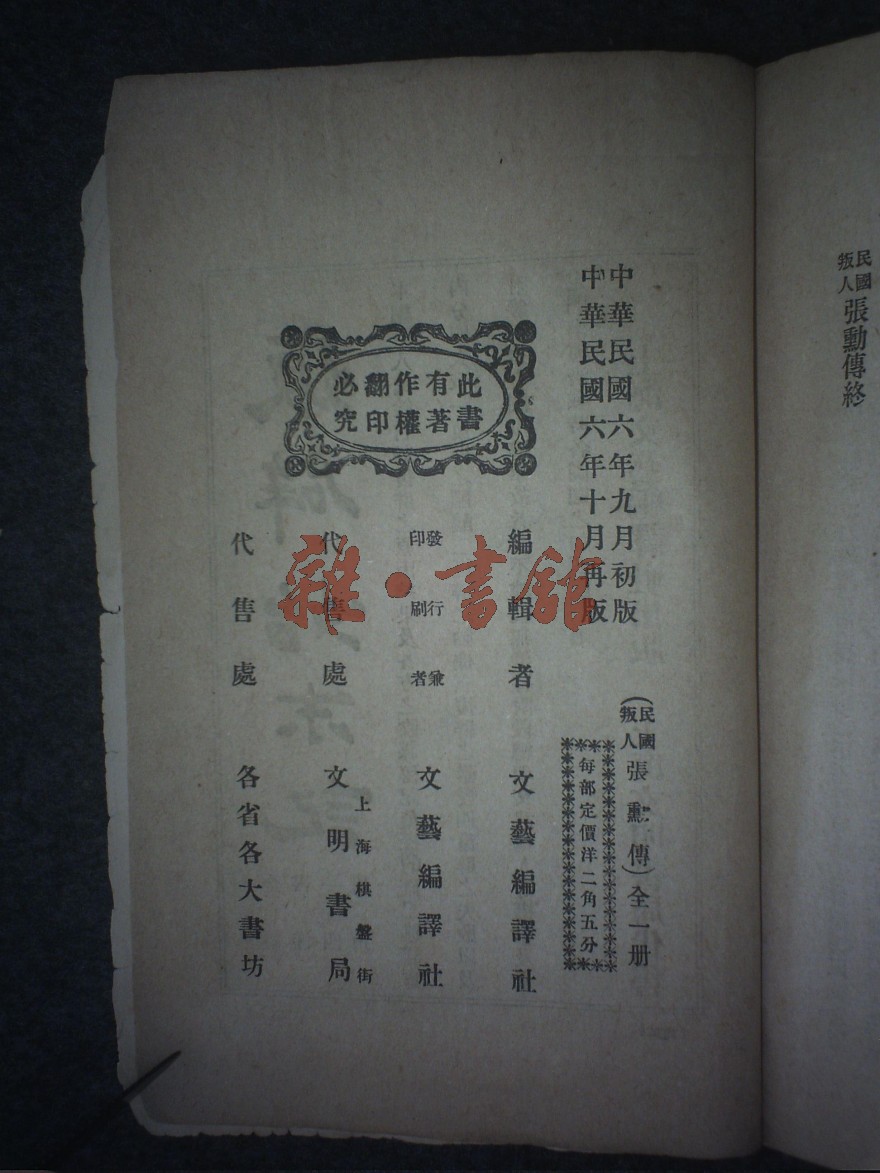 民國
叛人
張勳傳終
中華民國六年九月初版
中華民國六年十月再版
(民國
叛人
張勳傳)全一册
每部定價洋二角五分
此書
有著
作權
翻印
必究
編輯者 文藝編譯社
發行兼
印刷者
文藝編譯社
代售處
上海棋盤街
文明書局
代售處 各省各大書坊
雜·書館